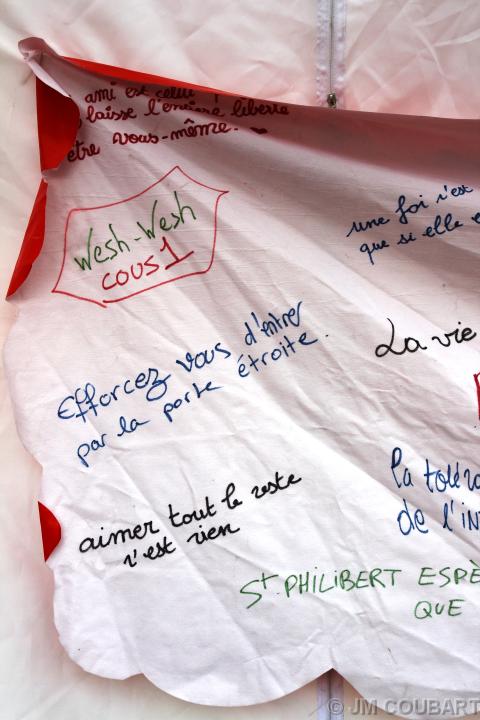 ami est celui
laisse l'entière liberté
être vous-même. ❤
Wesh-Wesh
cous 1
une foi n'est
que si elle e
Efforcez vous d'entrer
par la porte étroite.
La vie
aimer tout le reste
n'est rien
la toléra
de l'in
St. PHILIBERT ESPÈ
QUE
© JM COUBART